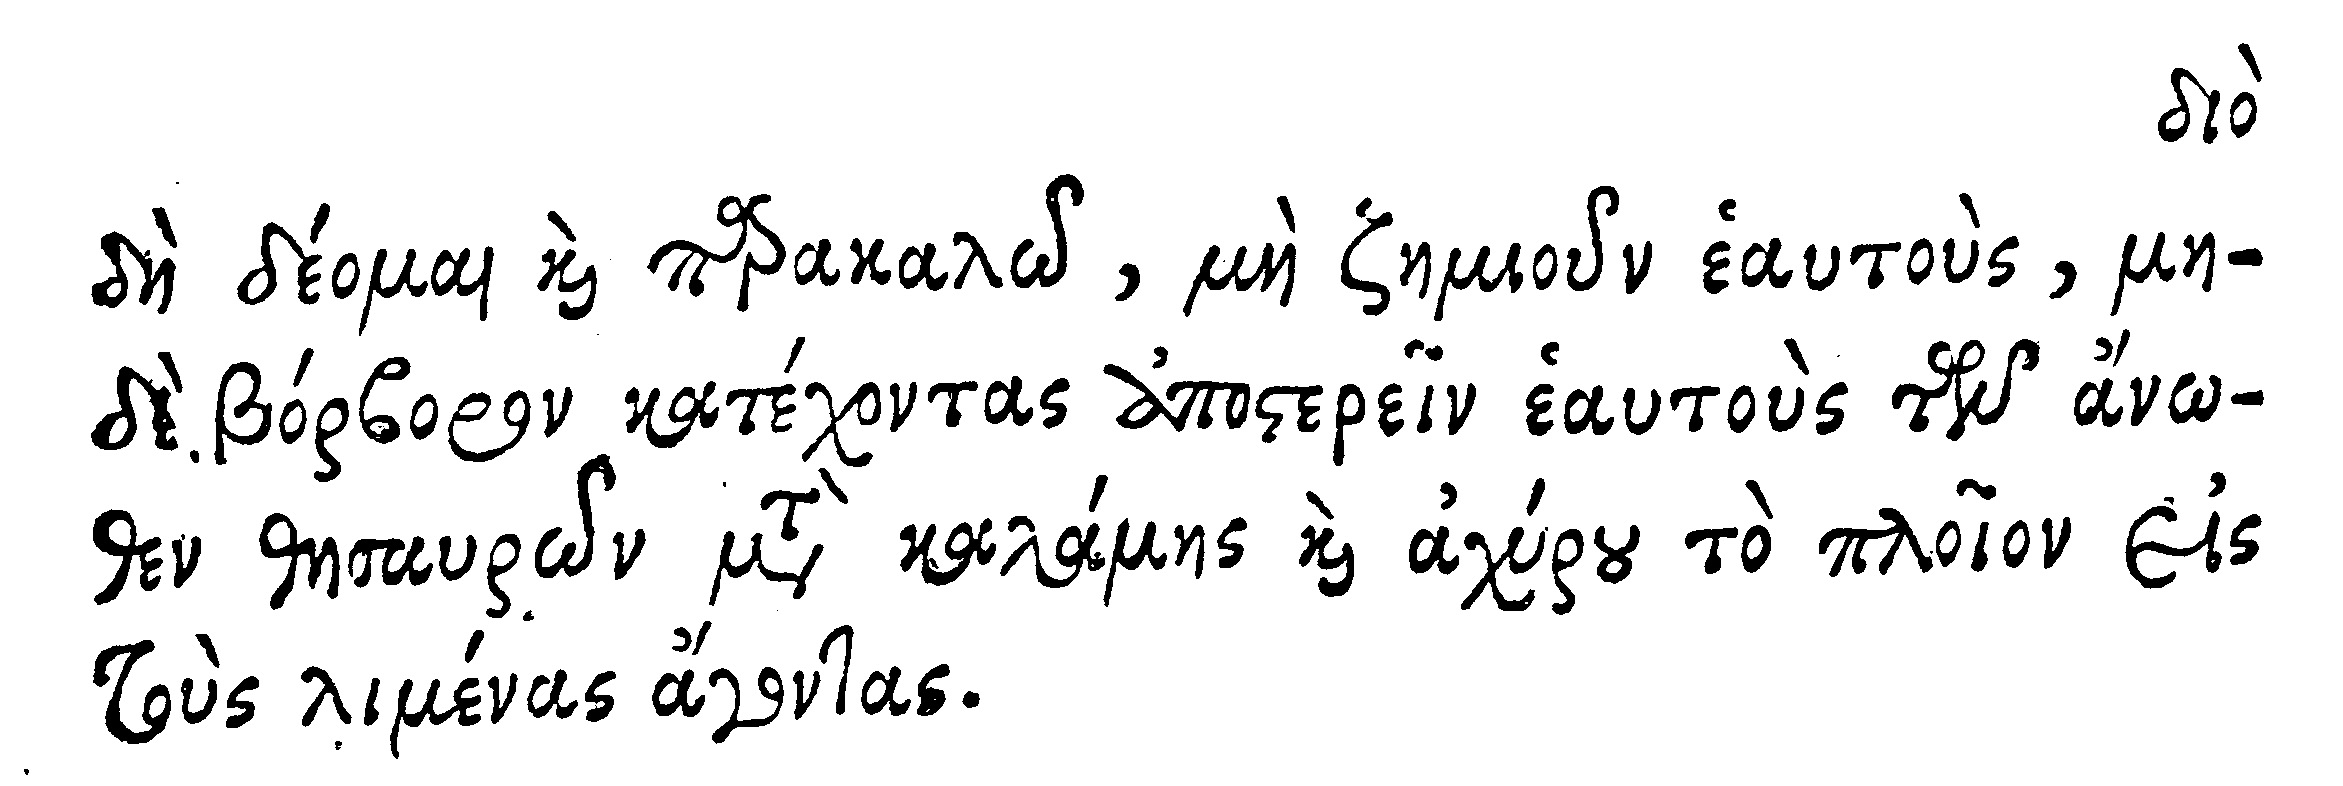 διὸ
δὴ δέομαι καὶ παρακαλῶ, μὴ ζημιοῦν ἑαυτοὺς, μη-
δὲ βόρβορον κατέχοντας ἀποστερεῖν ἑαυτοὺς τῶν ἄνω-
θεν θησαυρῶν μετὰ καλάμης καὶ ἀχύρου τὸ πλοῖον εἰς
τοὺς λιμένας ἄγοντας.